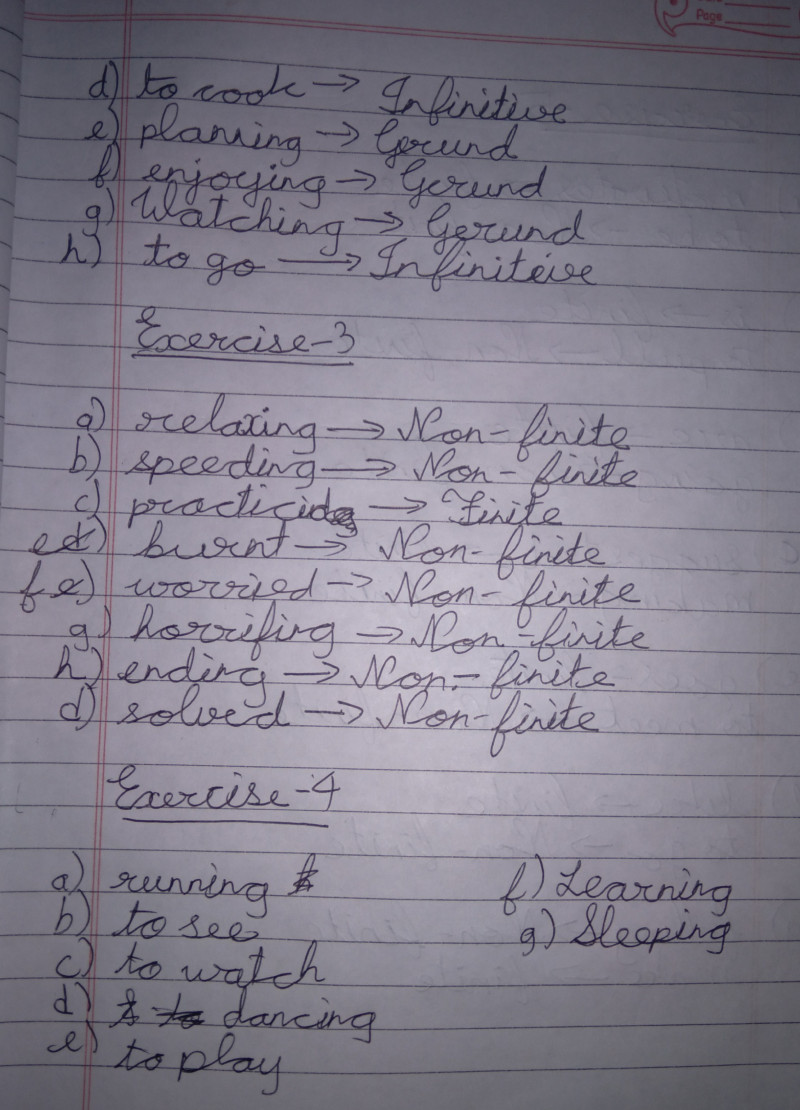 Page
d) to cook → Infinitive
e) planning → Gerund
f) enjoying → Gerund
g) Watching → Gerund
h) to go → Infiniteive
Exercise-3
a) relaxing → Non-finite
b) speeding → Non-finite
c) practicing → Finite
e) burnt → Non-finite
f) worried → Non-finite
g) horrifing → Non-finite
h) ending → Non-finite
d) solved → Non-finite
Exercise-4
a) running
f) Learning
b) to see
g) Sleeping
c) to watch
d) dancing
e) to play